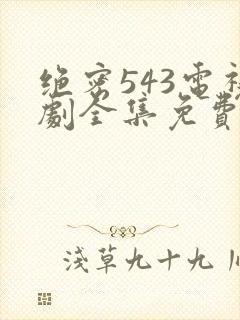 绝密543電視
劇全集免費
淺草九十九